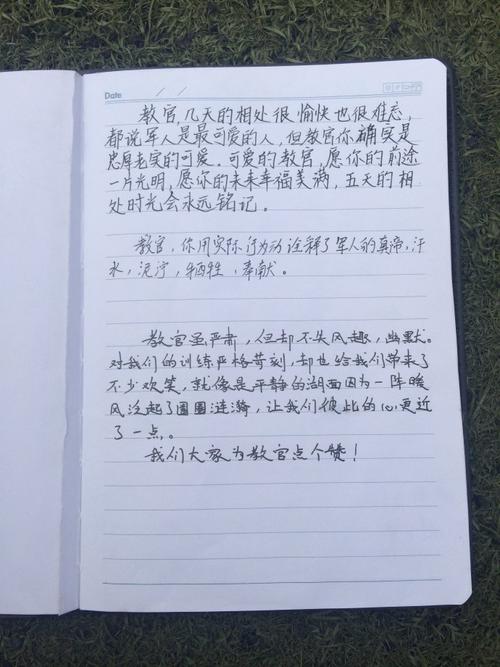 Date / /
教官,几天的相处很愉快也很难忘,
都说军人是最可爱的人,但教官你确实是
忠厚老实的可爱。可爱的教官,愿你的前途
一片光明,愿你的未来幸福美满,五天的相
处时光会永远铭记。
教官,你用实际行为动诠释了军人的真帝,汗
水,泥泞,牺牲,奉献。
教官虽严肃,但却不失风趣,幽默。
对我们的训练严格苛刻,却也给我们带来了
不少欢笑,就像是平静的湖面因为一阵暖
风泛起了圈圈涟漪,让我们彼此的心更近
了一点。
我们大家为教官点个赞!